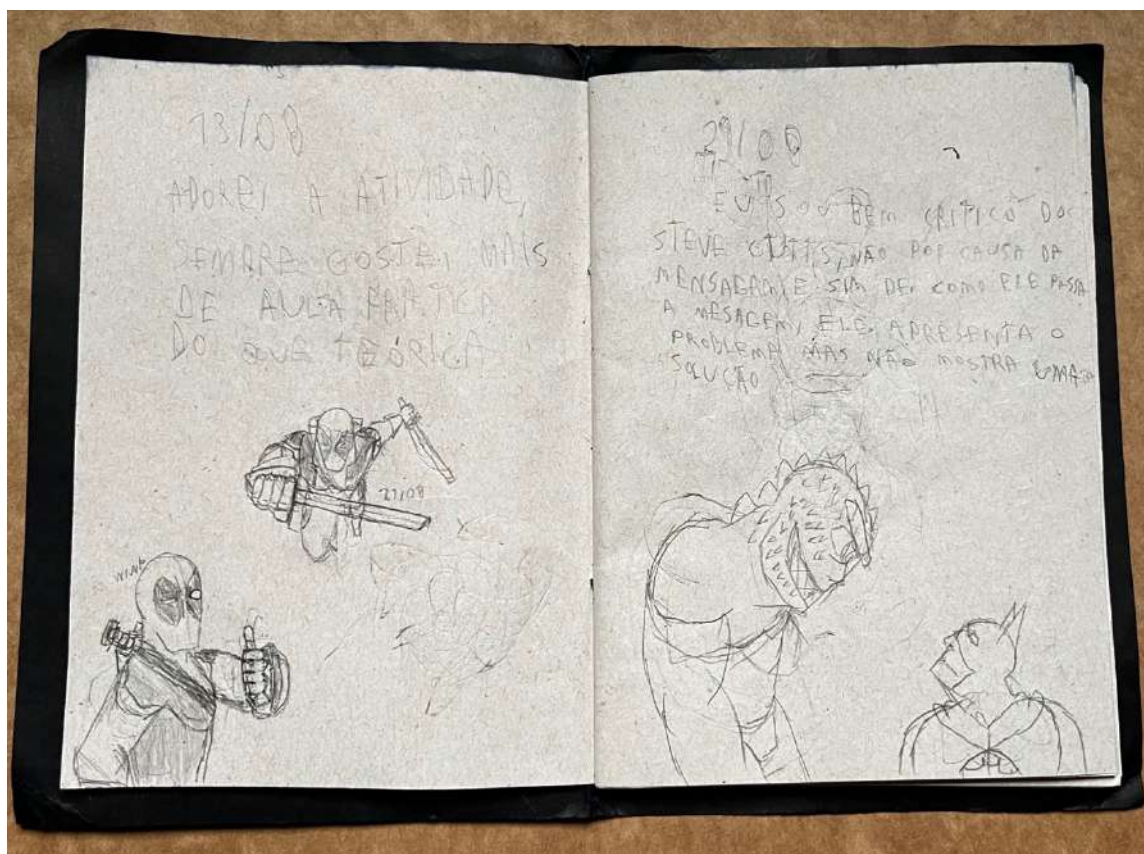 13/08
ADOREI A ATIVIDADE,
SEMPRE GOSTEI MAIS
DE AULA PARTICA
DO QUE TEÓRICA
27/08
WINK
29/08
EU SOU BEM CRITICO DO
STEVE CUTTIS, NÃO POR CAUSA DA
MENSAGEM, E SIM DE, COMO ELE PASSA
A MESAGEM, ELE APRESENTA O
PROBLEMA MAS NÃO MOSTRA UMA
SOLUÇÃO